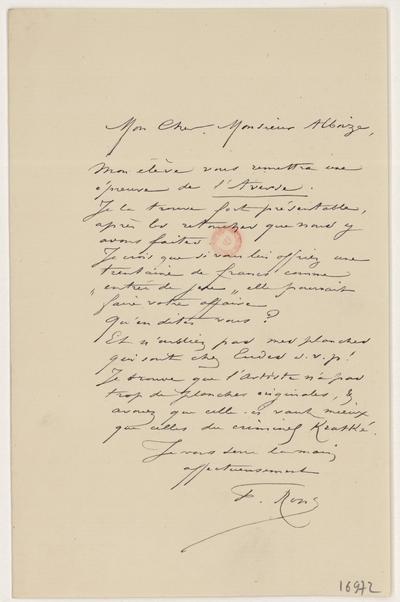 Mon Cher Monsieur Alboize,
Mon élève vous remettra une
épreuve de l'Averse.
Je la trouve fort présentable,
après les retouches que nous y
avons faites
Je crois que si vous lui offriez une
trentaine de francs comme
"entrée de jeu" elle pourrait
faire votre affaire
Qu'en dites vous?
Et n'oubliez pas mes planches
qui sont chez Eudes s.v.p!
Je trouve que l'Artiste n'a pas
trop de planches originales, &
avouez que celle-ci vaut mieux
que celles du criminel Kratké.
Je vous serre la main
affectueusement
F. Rops
16972